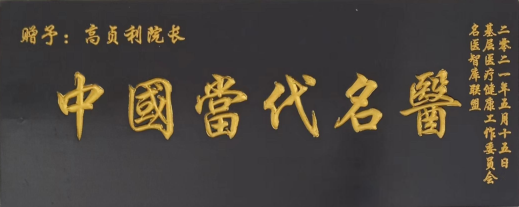 赠予：高贞利院长
中國當代名醫
二零二一年五月十五日
基层医疗健康工作委员会
名医智库联盟